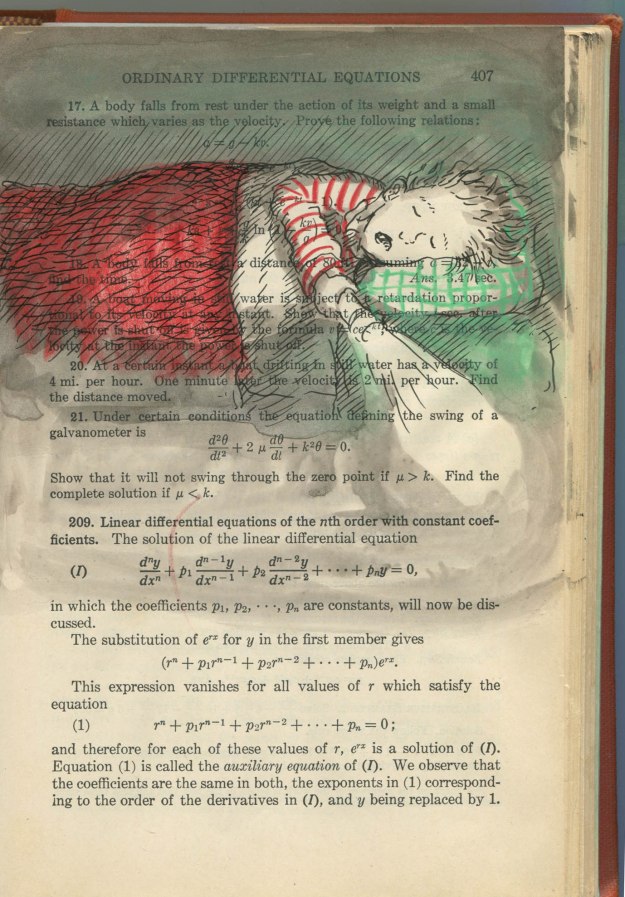 ORDINARY DIFFERENTIAL EQUATIONS 407
17. A body falls from rest under the action of its weight and a small
resistance which varies as the velocity. Prove the following relations:
a = g − kv.
18. A body falls from a distance of 80 assuming a = 32
and the time. Ans. 3.47 sec.
19. A boat moving in still water is subject to a retardation propor-
tional to its velocity at any instant. Show that the velocity t sec. after
the power is shut off is given by the formula v = ce⁻ᵏᵗ, where c is the ve-
locity at the instant the power is shut off.
20. At a certain instant a boat drifting in still water has a velocity of
4 mi. per hour. One minute later the velocity is 2 mi. per hour. Find
the distance moved.
21. Under certain conditions the equation defining the swing of a
galvanometer is
d²θ/dt² + 2 μ dθ/dt + k²θ = 0.
Show that it will not swing through the zero point if μ > k. Find the
complete solution if μ < k.
209. Linear differential equations of the nth order with constant coef-
ficients. The solution of the linear differential equation
(I) dⁿy/dxⁿ + p₁ dⁿ⁻¹y/dxⁿ⁻¹ + p₂ dⁿ⁻²y/dxⁿ⁻² + · · · + pₙy = 0,
in which the coefficients p₁, p₂, · · ·, pₙ are constants, will now be dis-
cussed.
The substitution of eʳˣ for y in the first member gives
(rⁿ + p₁rⁿ⁻¹ + p₂rⁿ⁻² + · · · + pₙ)eʳˣ.
This expression vanishes for all values of r which satisfy the
equation
(1) rⁿ + p₁rⁿ⁻¹ + p₂rⁿ⁻² + · · · + pₙ = 0;
and therefore for each of these values of r, eʳˣ is a solution of (I).
Equation (1) is called the auxiliary equation of (I). We observe that
the coefficients are the same in both, the exponents in (1) correspond-
ing to the order of the derivatives in (I), and y being replaced by 1.